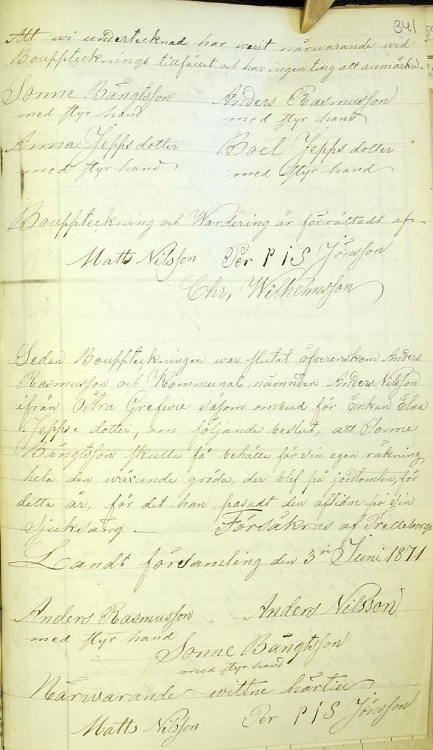 341
Att wi undertecknad har werit närwarande wid
Bouppteckningstillfället och har ingen ting att anmärka
Sonne Bängtsson Anders Rasmusson
med styr hand med styr hand
Anna Jepps dotter Boel Jepps dotter
med styr hand med styr hand
Bouppteckning och Wardering är förrättadt af
Matts Nilsson Per P I S Jönsson
Chr, Wilhelmsson
Sedan Bouppteckningen war slutat öfverenskom Anders
Rasmusson och Kommunal nämnden Anders Nilsson
ifrån Östra Grefwie såsom ombud för Enkan Elna
Jepps dotter, om följande beslut, att Sonne
Bängtsson skulle få behålla för sin egen räkning
hela den wäxande gröda, der blef på jordtomten, för
detta år, för det han passadt den aflidne på sin
Sjuksäng. Försäkras af Trelleborgs
Landt församling den 3 Juni 1871
Anders Rasmusson Anders Nilsson
med styr hand
Sonne Bängtsson
med styr hand
Närwarande wittne härtill
Matts Nilsson Per P I S Jönsson